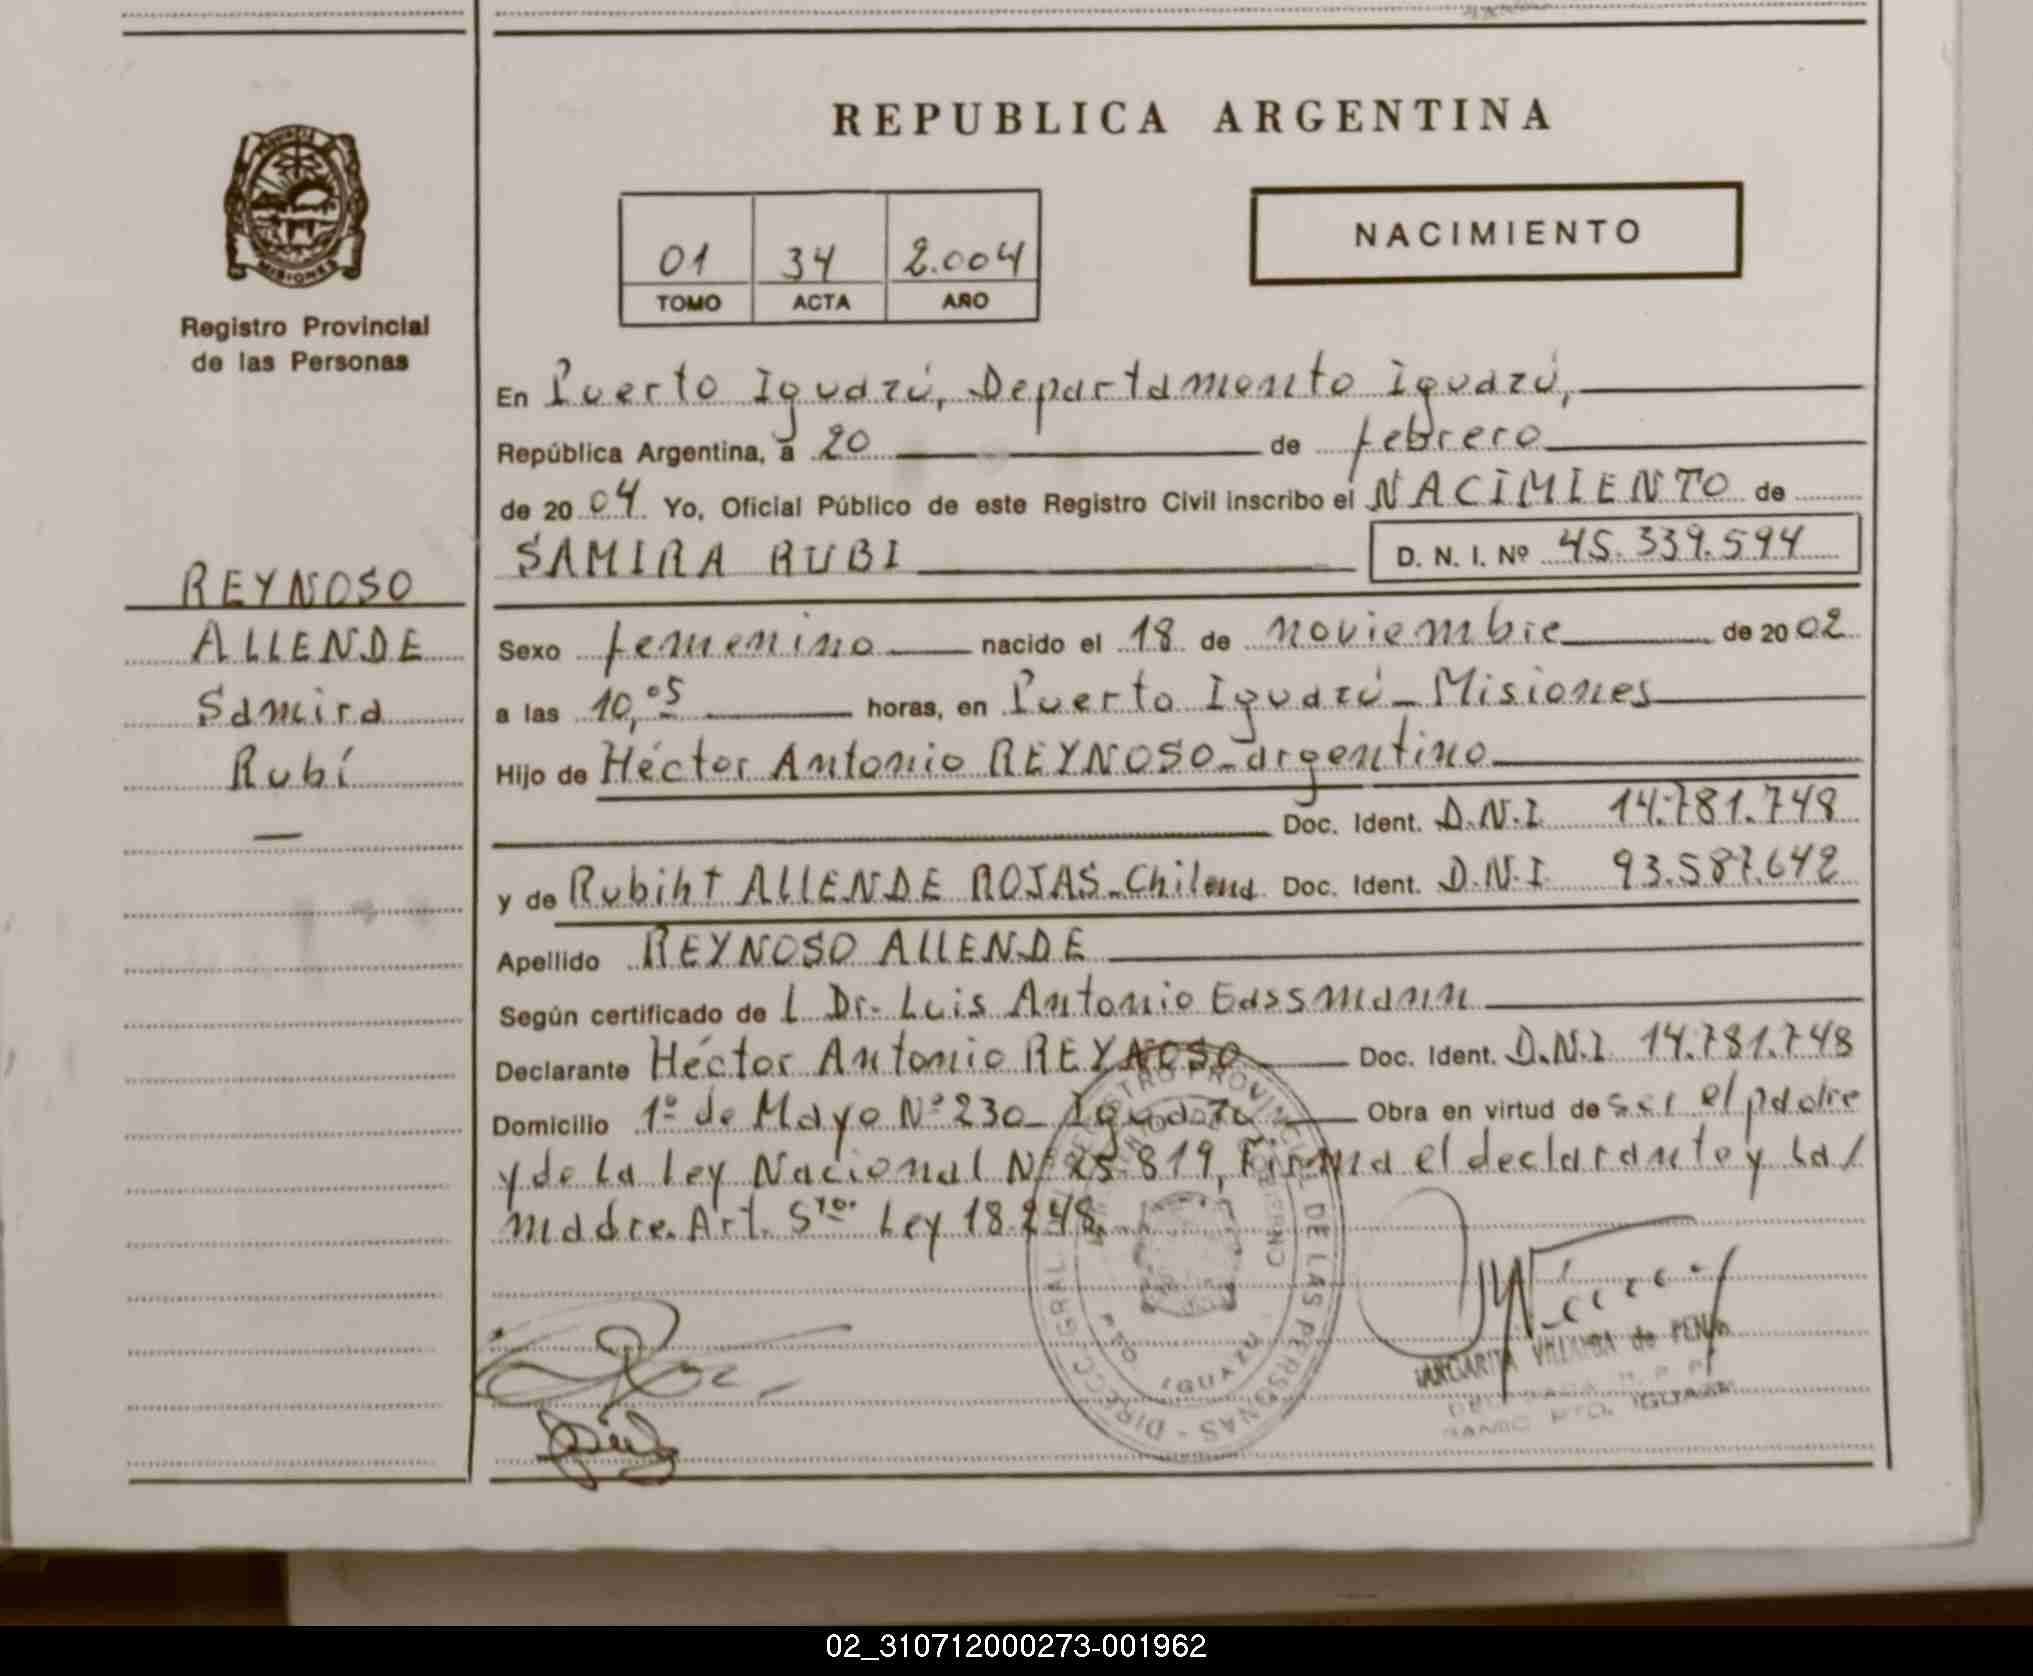 REPUBLICA ARGENTINA
NACIMIENTO
01 34 2.004
TOMO ACTA AÑO
MISIONES
Registro Provincial
de las Personas
REYNOSO
ALLENDE
Samira
Rubí
En Puerto Iguazú, Departamento Iguazú,
República Argentina, a 20 de febrero
de 20 04 Yo, Oficial Público de este Registro Civil inscribo el NACIMIENTO de
SAMIRA RUBI D. N. I. Nº 45.339.594
Sexo femenino nacido el 18 de noviembre de 20 02
a las 10,05 horas, en Puerto Iguazú - Misiones
Hijo de Héctor Antonio REYNOSO - argentino
Doc. Ident. D.N.I. 14.781.748
y de Rubiht ALLENDE ROJAS - Chilena Doc. Ident. D.N.I. 93.587.642
Apellido REYNOSO ALLENDE
Según certificado de l Dr. Luis Antonio Gassmann
Declarante Héctor Antonio REYNOSO Doc. Ident. D.N.I. 14.781.748
Domicilio 1º de Mayo Nº 230 - Iguazú Obra en virtud de ser el padre
y de la Ley Nacional Nº 25.819, Firma el declarante y la /
madre. Art. 5to. Ley 18.248.
DIRECC. GRAL. REGISTRO PROVINCIAL DE LAS PERSONAS
IGUAZU
MARGARITA VILLALBA de PENA
IGUAZU
02_310712000273-001962